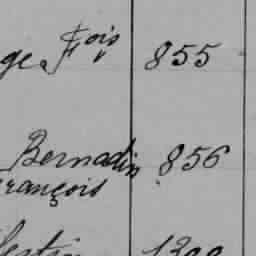 ge Fois 855
Bernadin 856
François
lestin 1300